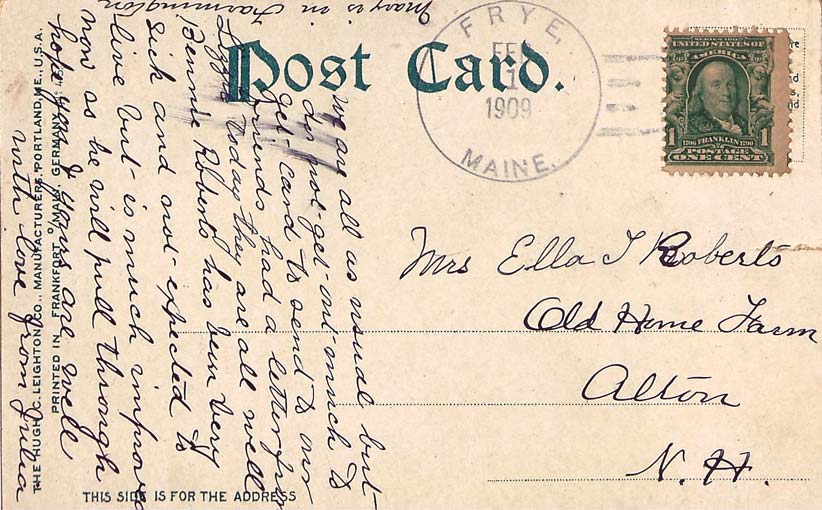 Mary is in Farmington
Post Card.
FRYE,
FEB
1
1909
MAINE.
UNITED STATES OF
AMERICA
1 1
1706 FRANKLIN 1790
POSTAGE
ONE CENT
We are all as usual but
do not get out much to
get card to send to our
friends had a letter from
Lizzie today they are all well
Bennie Roberts has been very
sick and not expected to
live but is much improved
now as he will pull through
hope you & yours are well
with love from Julia
Mrs Ella J Roberts
Old Home Farm
Alton
N. H.
THE HUGH C. LEIGHTON CO., MANUFACTURERS, PORTLAND, ME., U.S.A.
PRINTED IN FRANKFORT O/MAIN, GERMANY.
THIS SIDE IS FOR THE ADDRESS